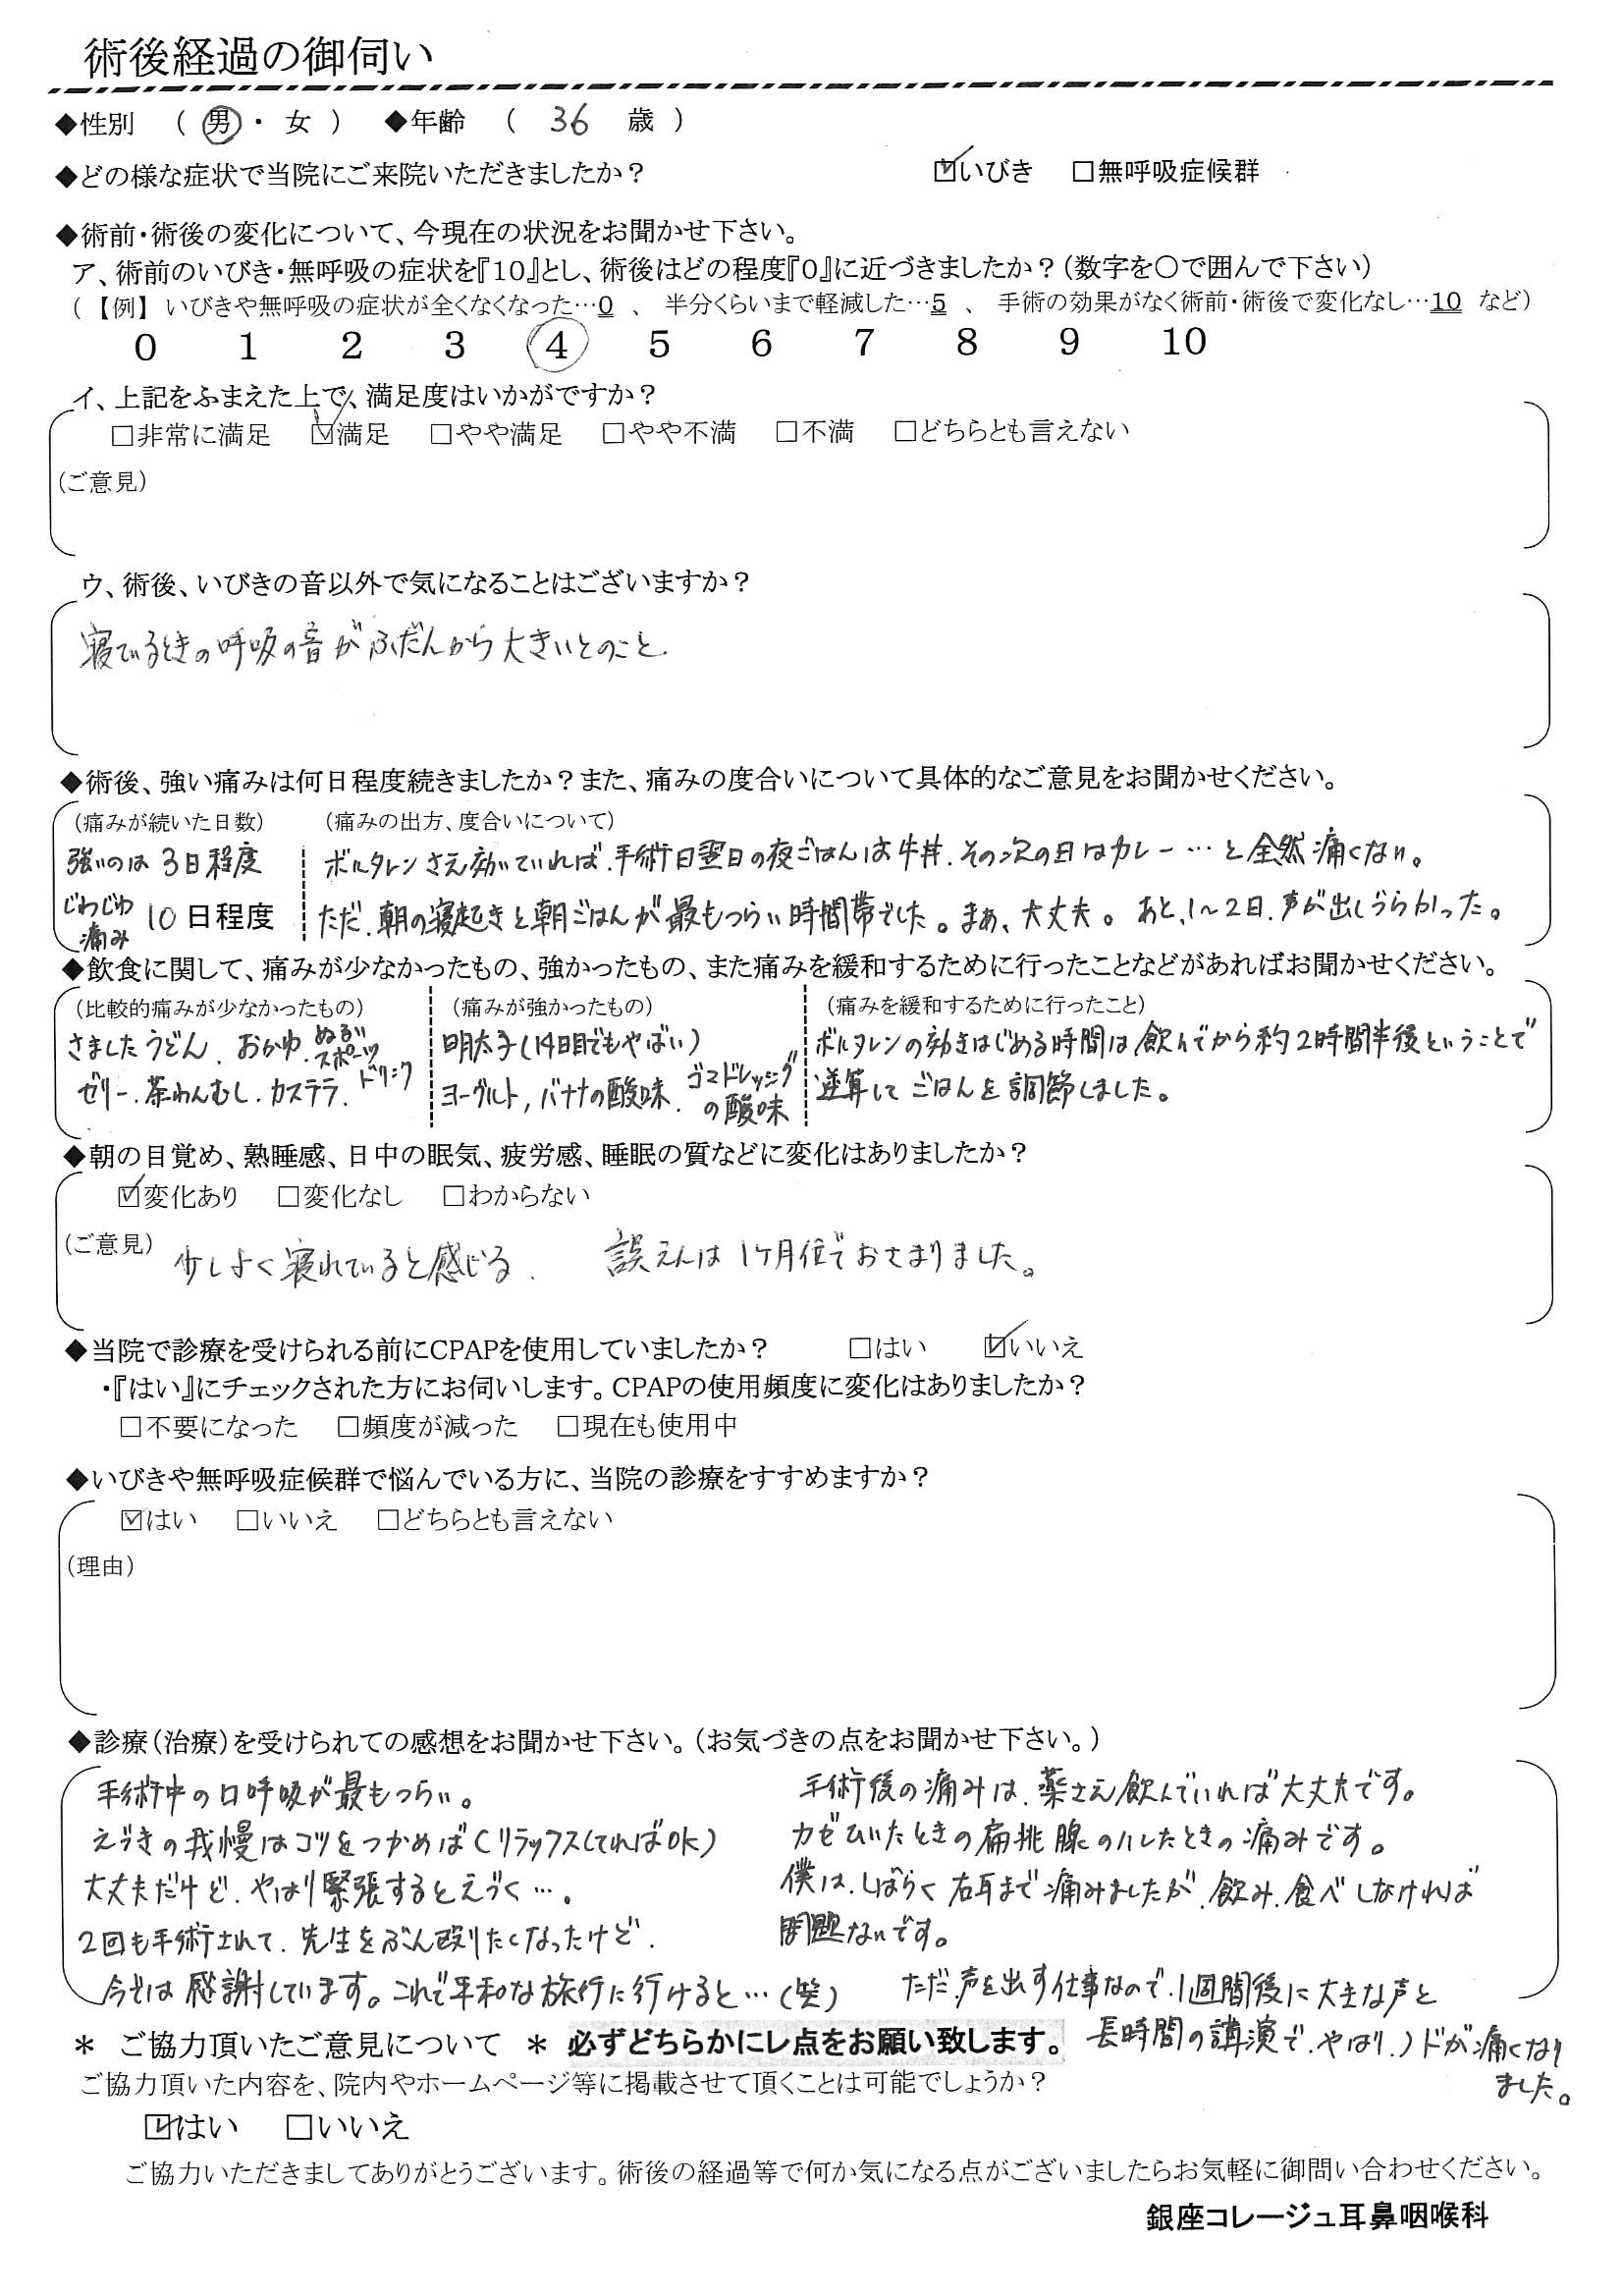 術後経過の御伺い
◆性別 （ 男 ・ 女 ） ◆年齢 （ 36 歳 ）
◆どの様な症状で当院にご来院いただきましたか？ ☑いびき □無呼吸症候群
◆術前・術後の変化について、今現在の状況をお聞かせ下さい。
ア、術前のいびき・無呼吸の症状を『10』とし、術後はどの程度『0』に近づきましたか？（数字を〇で囲んで下さい）
（ 【例】 いびきや無呼吸の症状が全くなくなった…0 、 半分くらいまで軽減した…5 、 手術の効果がなく術前・術後で変化なし…10 など）
0 1 2 3 4 5 6 7 8 9 10
イ、上記をふまえた上で、満足度はいかがですか？
□非常に満足 ☑満足 □やや満足 □やや不満 □不満 □どちらとも言えない
（ご意見）
ウ、術後、いびきの音以外で気になることはございますか？
寝ているときの呼吸の音がふだんから大きいとのこと.
◆術後、強い痛みは何日程度続きましたか？また、痛みの度合いについて具体的なご意見をお聞かせください。
（痛みが続いた日数） （痛みの出方、度合いについて）
強いのは 3日程度 ボルタレンさえ効いていれば、手術日翌日の夜ごはんは牛丼、その次の日はカレー…と全然痛くない。
じわじわ痛み 10日程度 ただ、朝の寝起きと朝ごはんが最もつらい時間帯でした。まあ、大丈夫。 あと、1～2日、声が出しづらかった。
◆飲食に関して、痛みが少なかったもの、強かったもの、また痛みを緩和するために行ったことなどがあればお聞かせください。
（比較的痛みが少なかったもの） （痛みが強かったもの） （痛みを緩和するために行ったこと）
さましたうどん、おかゆ、ぬるいスポーツドリンク 明太子（14日目でもやばい） ボルタレンの効きはじめる時間は、飲んでから約2時間半後ということで
ゼリー、茶わんむし、カステラ、 ヨーグルト, バナナの酸味、ゴマドレッシングの酸味 逆算してごはんを調節しました。
◆朝の目覚め、熟睡感、日中の眠気、疲労感、睡眠の質などに変化はありましたか？
☑変化あり □変化なし □わからない
（ご意見） 少しよく寝れていると感じる. 誤えんは1ヶ月位でおさまりました。
◆当院で診療を受けられる前にCPAPを使用していましたか？ □はい ☑いいえ
・『はい』にチェックされた方にお伺いします。CPAPの使用頻度に変化はありましたか？
□不要になった □頻度が減った □現在も使用中
◆いびきや無呼吸症候群で悩んでいる方に、当院の診療をすすめますか？
☑はい □いいえ □どちらとも言えない
（理由）
◆診療（治療）を受けられての感想をお聞かせ下さい。（お気づきの点をお聞かせ下さい。）
手術中の口呼吸が最もつらい。
えづきの我慢はコツをつかめば（リラックスしてればOK）
大丈夫だけど、やはり緊張するとえづく…。
2回も手術されて、先生をぶん殴りたくなったけど、
今では感謝しています。これで平和な旅行に行けると…（笑）
手術後の痛みは、薬さえ飲んでいれば大丈夫です。
カゼひいたときの扁桃腺のハレたときの痛みです。
僕は、しばらく右耳まで痛みましたが、飲み、食べしなければ
問題ないです。
ただ、声を出す仕事なので、1週間後に大きな声と
長時間の講演で、やはり、ノドが痛くなり
ました。
＊ ご協力頂いたご意見について ＊ 必ずどちらかにレ点をお願い致します。
ご協力頂いた内容を、院内やホームページ等に掲載させて頂くことは可能でしょうか？
☑はい □いいえ
ご協力いただきましてありがとうございます。術後の経過等で何か気になる点がございましたらお気軽に御問い合わせください。
銀座コレージュ耳鼻咽喉科